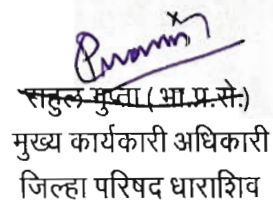 राहुल गुप्ता (भा.प्र.से.)
मुख्य कार्यकारी अधिकारी
जिल्हा परिषद धाराशिव